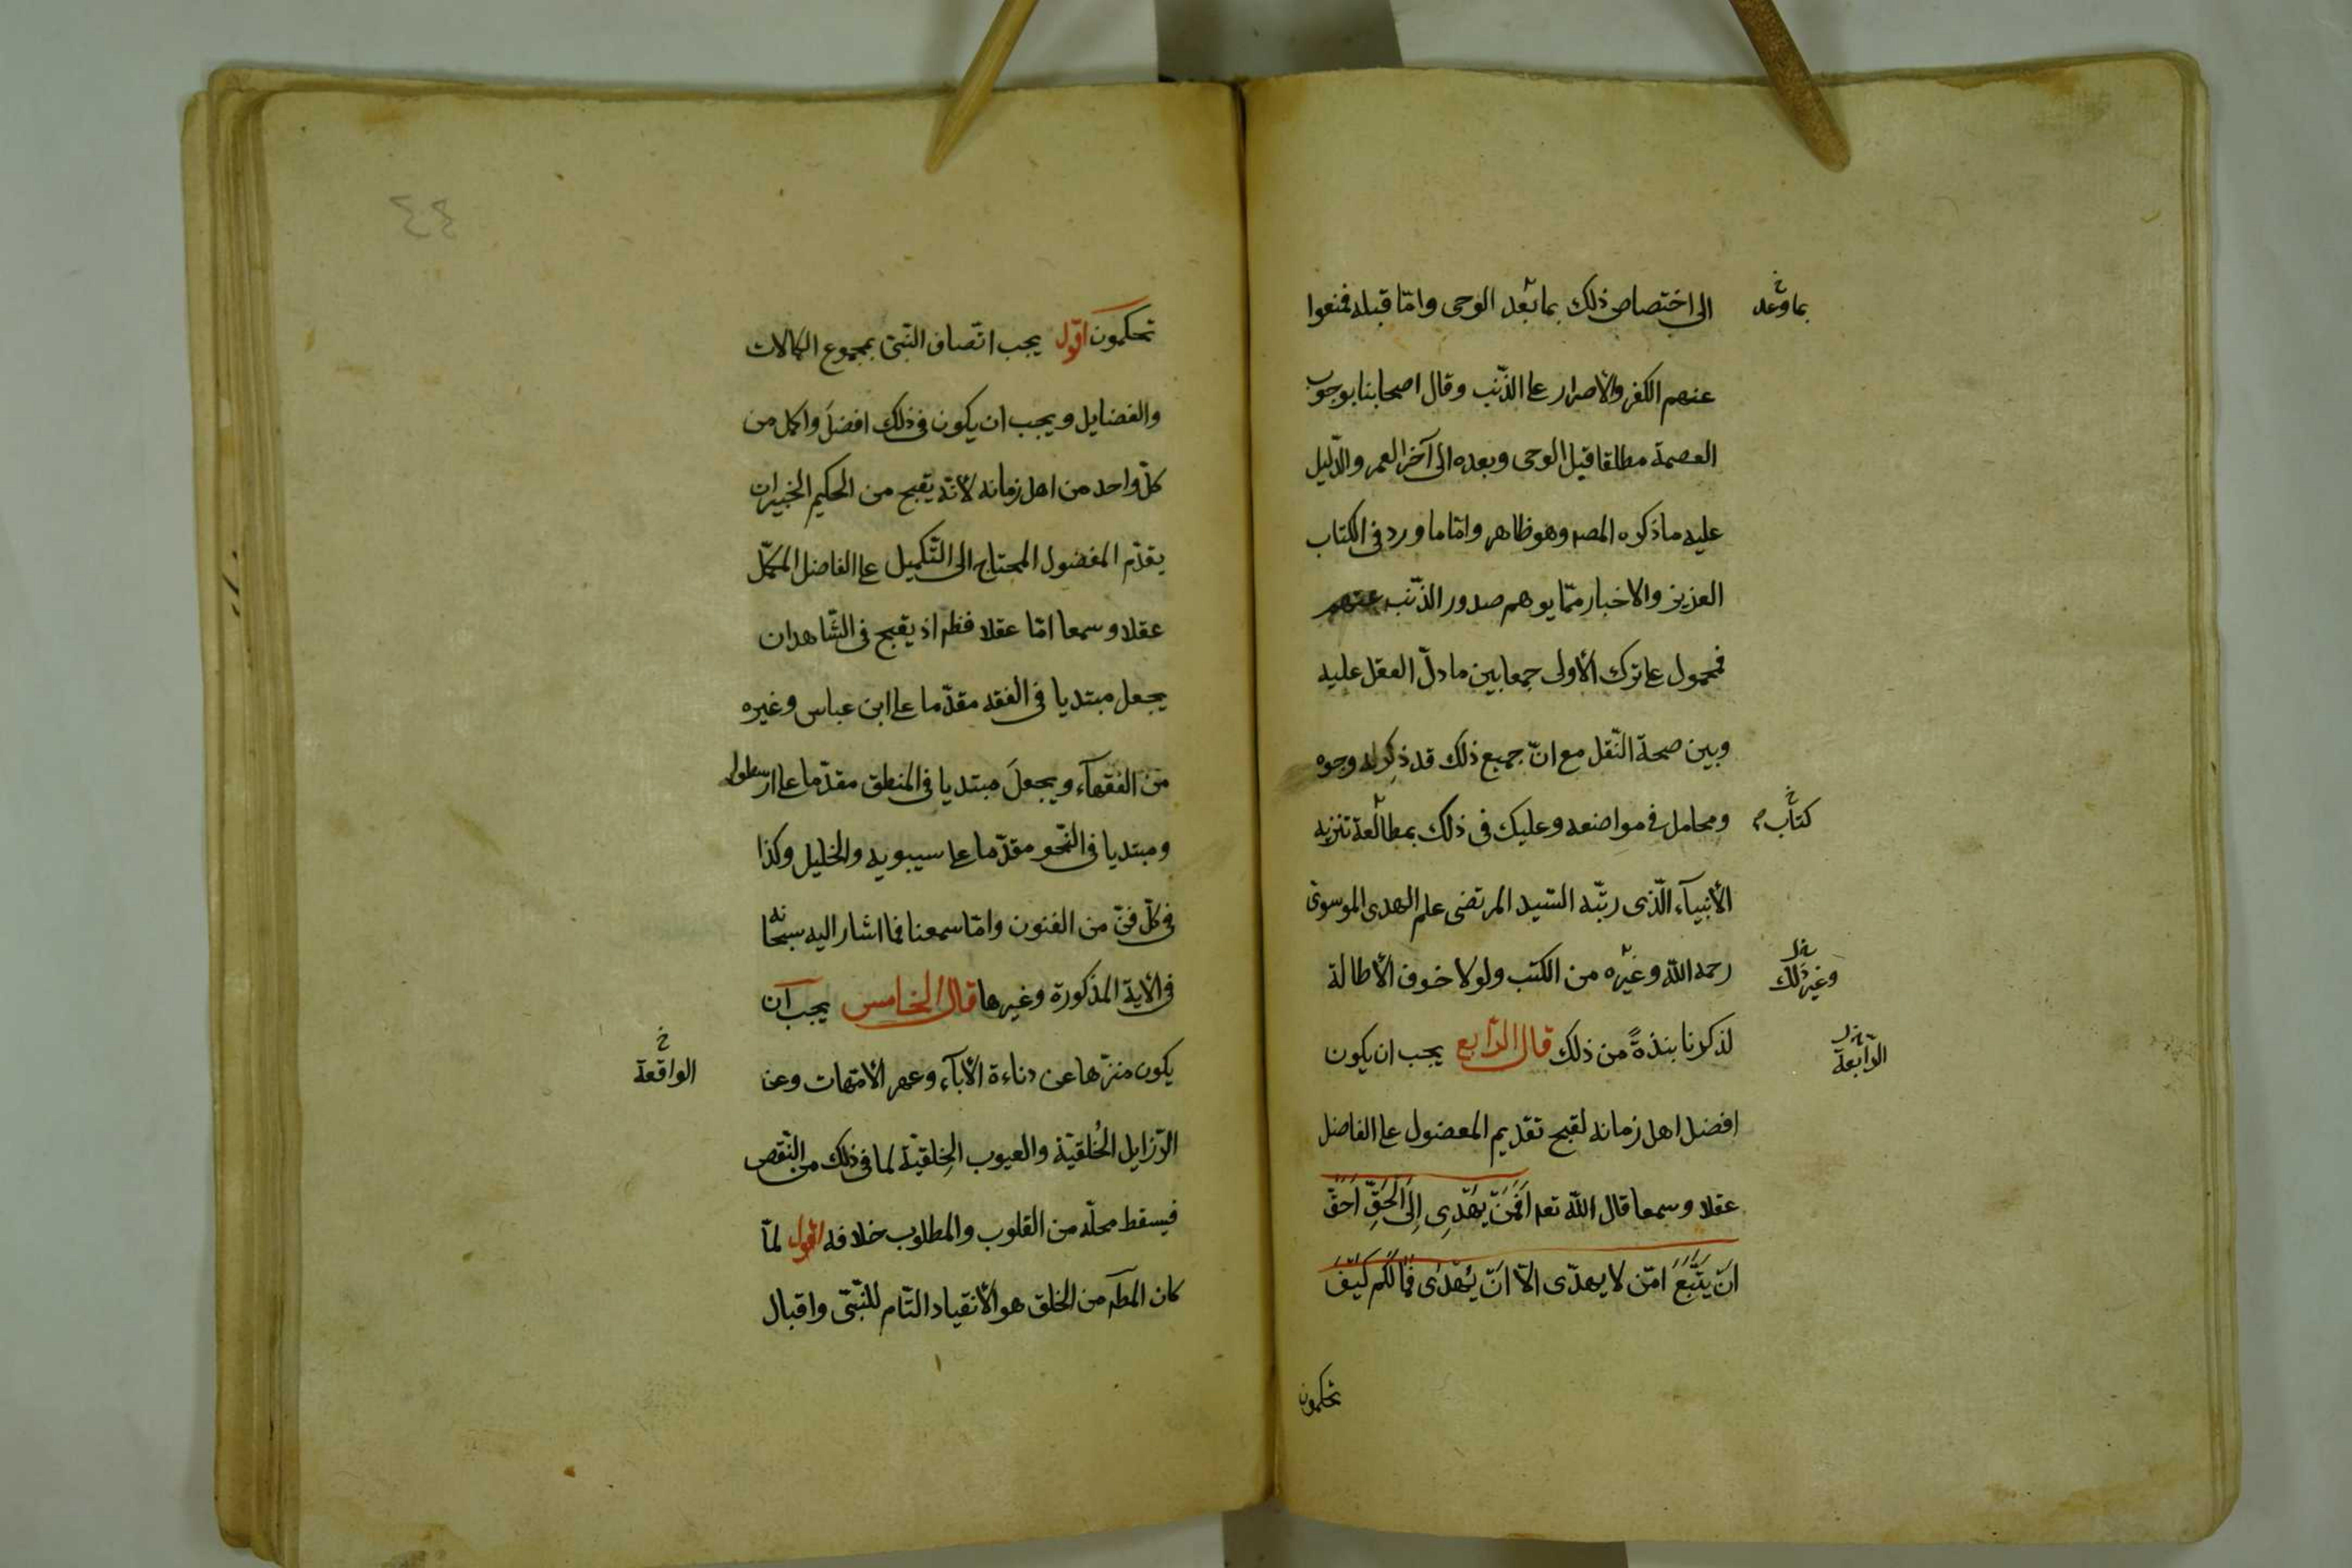 الى اختصاص ذلك بما بعد الوحى وامّا قبله فمنعوا
بما وعد
عنهم الكفر والأصرار على الذّنب وقال اصحابنا بوجوب
العصمة مطلقا قبل الوحى وبعده الى آخر العمر والدّليل
عليه ما ذكره المصـ وهو ظاهر وامّا ما ورد فى الكتاب
العزيز والاخبار ممّا يوهم صدور الذّنب عنهم
فمحمول على ترك الأولى جمعا بين ما دلّ العقل عليه
وبين صحة النّقل مع انّ جميع ذلك قد ذكر له وجوه
ومحامل فى مواضعه وعليك فى ذلك بمطالعة تنزيه
كتاب
الأنبيآء الّذى رتّبه السّيد المرتضى علم الهدى الموسوى
رحمه الله وغيره من الكتب ولولا خوف الأطالة
وغير ذلك
لذكرنا بنذةً من ذلك قال الرّابع يجب ان يكون
الرّابعة
افضل اهل زمانه لقبح تقديم المفضول على الفاضل
عقلا وسمعا قال الله تعـ اَفَمَنْ يَهْدِى اِلَى الْحَقِّ اَحَقّ
اَنْ يُتَّبَعَ امّن لا يهدّى الّا انْ يُهْدٰى فَمٰا لَكُم كَيْفَ
تحكمون
٤٤
تحكمون اقول يجب اتّصاف النّبىّ بمجموع الكمالات
والفضايل ويجب ان يكون فى ذلك افضلَ واكمل من
كلّ واحد من اهل زمانه لأنّه يقبح من الحكيم الخبير ان
يقدّم المفضول المحتاج الى التّكميل على الفاضل المكمّل
عقلا وسمعا امّا عقلا فظـ اذ يقبح فى الشّاهد ان
يجعل مبتديا فى الفقه مقدّما على ابن عباس وغيره
من الفقهآء ويجعلَ مبتديا فى المنطق مقدّما على ارسطو
ومبتديا فى النّحو مقدّما على سيبويه والخليل وكذا
فى كلّ فنّ من الفنون وامّا سمعنا فما اشار اليه سبحانه
فى الأية المذكورة وغيرها قال الخامس يجب ان
يكون منزّها عن دناءة الأبآء وعهر الأمّهات وعن
الواقعة
الرّزايل الخُلقيّة والعيوب الخِلقيّة لما فى ذلك من النّقص
فيسقط محلّه من القلوب والمطلوب خلافه اقول لمّا
كان المطـ من الخلق هو الأنقياد التّام للنّبىّ واقبال